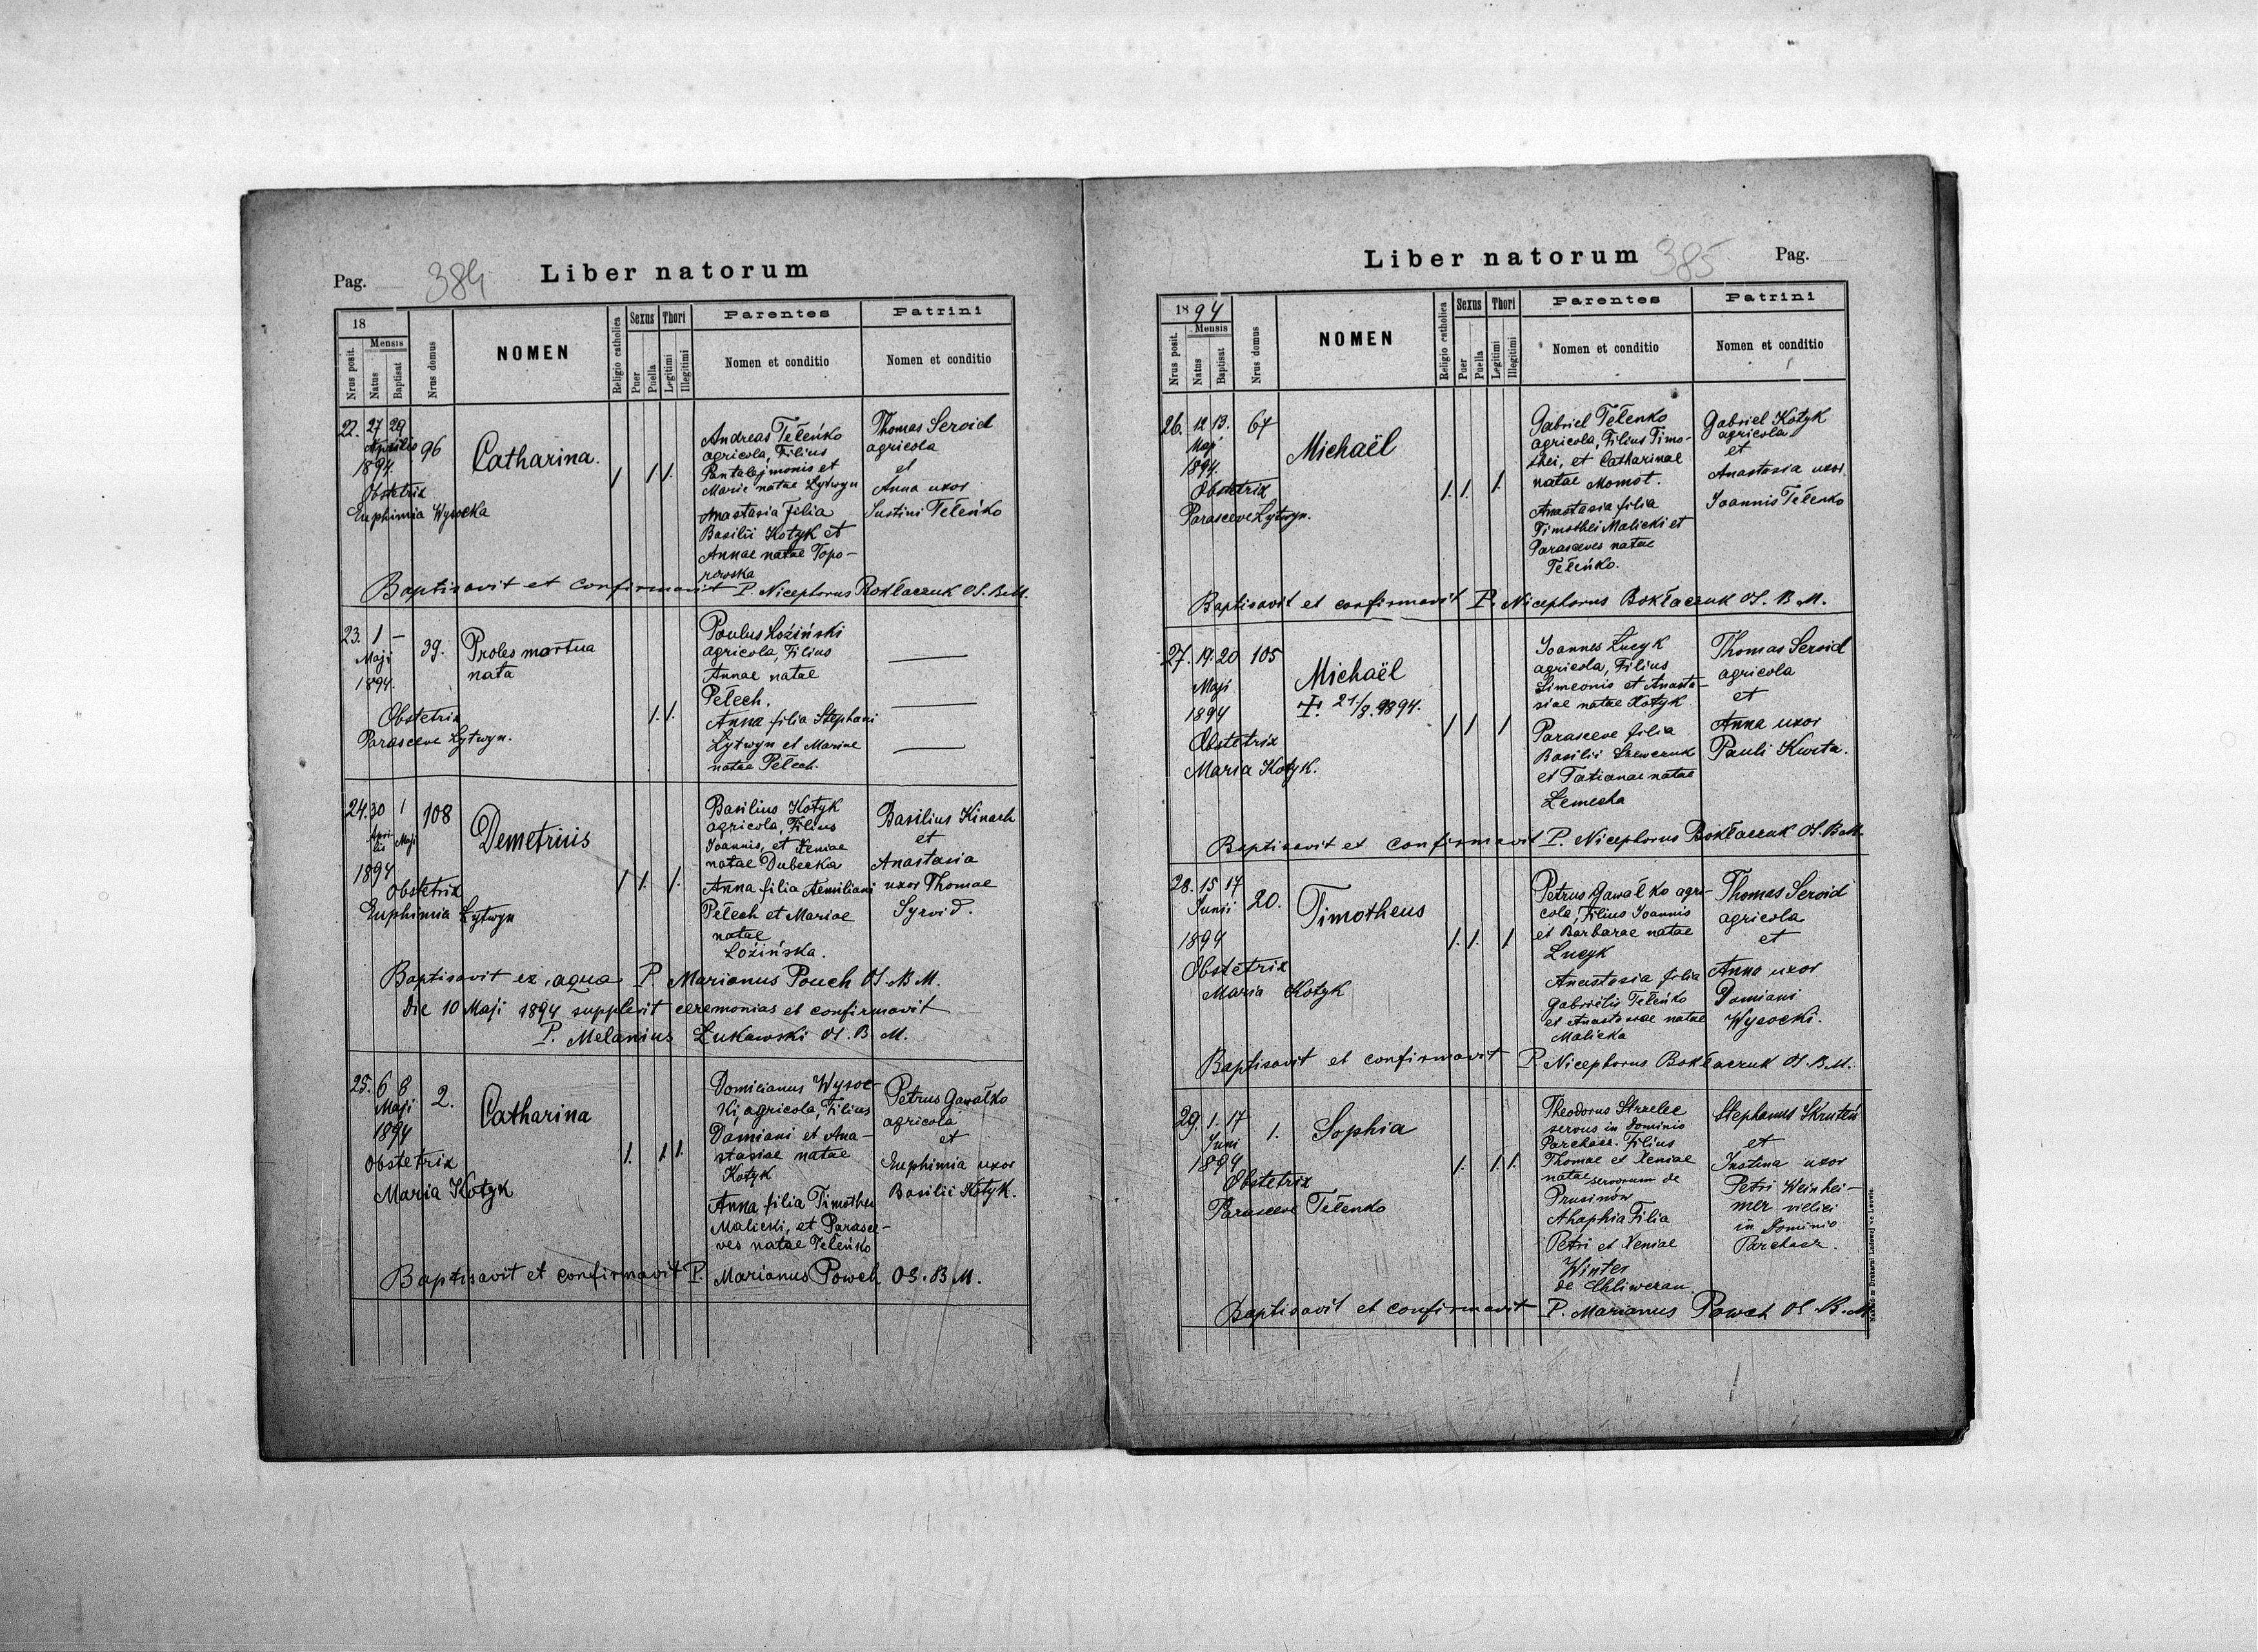 Pag. 384 Liber natorum
18
Nrus posit.
Mensis
Natus
Baptisat
Nrus domus
NOMEN
Religio catholica
Sexus
Puer
Puella
Thori
Legitimi
Illegitimi
Parentes
Nomen et conditio
Patrini
Nomen et conditio
22. 27 29
Aprilis
1894.
96
Obstetrix
Euphimia Wysocka
Catharina.
1 1 1.
Andreas Teleńko
agricola, Filius
Pantalejmonis et
Marie natae Lytwyn
Anastasia filia
Basilii Kotyk et
Annae natae Topo-
rowska
Thomas Seroid
agricola
et
Anna uxor
Justini Teleńko
Baptisavit et confirmavit P. Nicephorus Bokłaczuk OS. B.M.
23. 1 –
Maji
1894.
39.
Obstetrix
Parasceve Lytwyn.
Proles mortua
nata
1. 1.
Paulus Łoziński
agricola, Filius
Annae natae
Pełech.
Anna filia Stephani
Lytwyn et Mariae
natae Pełech.
24. 30 1
Apri-
lis Maji
1894
108
Obstetrix
Euphimia Lytwyn
Demetrius
1 1. 1.
Basilius Kotyk
agricola, Filius
Joannis, et Xeniae
natae Dubecka
Anna filia Aemiliani
Pełech et Mariae
natae
Łozińska.
Basilius Kinach
et
Anastasia
uxor Thomae
Syroid.
Baptisavit ex aqua P. Marianus Powch OS. B M.
die 10 Maji 1894 supplevit ceremonias et confirmavit
P. Melanius Łukawski OS. B. M.
25. 6 8
Maji
1894
2.
Obstetrix
Maria Kotyk
Catharina
1. 1. 1.
Domicianus Wysoc-
kij agricola, Filius
Damiani et Ana-
stasiae natae
Kotyk
Anna filia Timothei
Malicki, et Parasce-
ves natae Teleńko
Petrus Gawałko
agricola
et
Euphimia uxor
Basilii Kotyk.
Baptisavit et confirmavit P. Marianus Powch OS. B M.
Liber natorum 385 Pag.
1894
Nrus posit.
Mensis
Natus
Baptisat
Nrus domus
NOMEN
Religio catholica
Sexus
Puer
Puella
Thori
Legitimi
Illegitimi
Parentes
Nomen et conditio
Patrini
Nomen et conditio
26. 12 13.
Maji
1894.
67
Obstetrix
Parasceve Lytwyn.
Michaël
1. 1. 1.
Gabriel Telenko
agricola, Filius Timo-
thei, et Catharinae
natae Momot.
Anastasia filia
Timothei Malicki et
Parasceves natae
Teleńko.
Gabriel Kotyk
agricola
et
Anastasia uxor
Joannis Telenko
Baptisavit et confirmavit P. Nicephorus Bokłaczuk OS. B M.
27. 19. 20
Maji
1894
105
Obstetrix
Maria Kotyk.
Michaël
†. 21/8. 1894.
1 1 1
Joannes Łucyk
agricola, Filius
Simeonis et Anasta-
siae natae Kotyk
Parasceve filia
Basilii Szewczuk
et Tatianae natae
Łemecha
Thomas Seroid
agricola
et
Anna uxor
Pauli Kwita.
Baptisavit et confirmavit P. Nicephorus Bokłaczuk OS. B M.
28. 15 17
Junii
1894
20.
Obstetrix
Maria Kotyk
Timotheus
1. 1. 1
Petrus Gawałko agri-
cola, Filius Joannis
et Barbarae natae
Łucyk
Anastasia filia
Gabrielis Teleńko
et Anastasiae natae
Malicka
Thomas Seroid
agricola
et
Anna uxor
Damiani
Wysocki.
Baptisavit et confirmavit P. Nicephorus Bokłaczuk OS. B.M.
29. 1. 17
Juni
1894
1.
Obstetrix
Parasceve Telenko
Sophia
1. 1. 1.
Theodorus Strzelec
servus in Dominio
Parchacz. Filius
Thomae et Xeniae
natae servorum de
Prusinów
Ahaphia Filia
Petri et Xeniae
Winter
de Chliwczan.
Stephanus Skruteń
et
Justina uxor
Petri Weinhei-
mer villici
in Dominio
Parchacz.
Baptisavit et confirmavit P. Marianus Powch OS B. M.